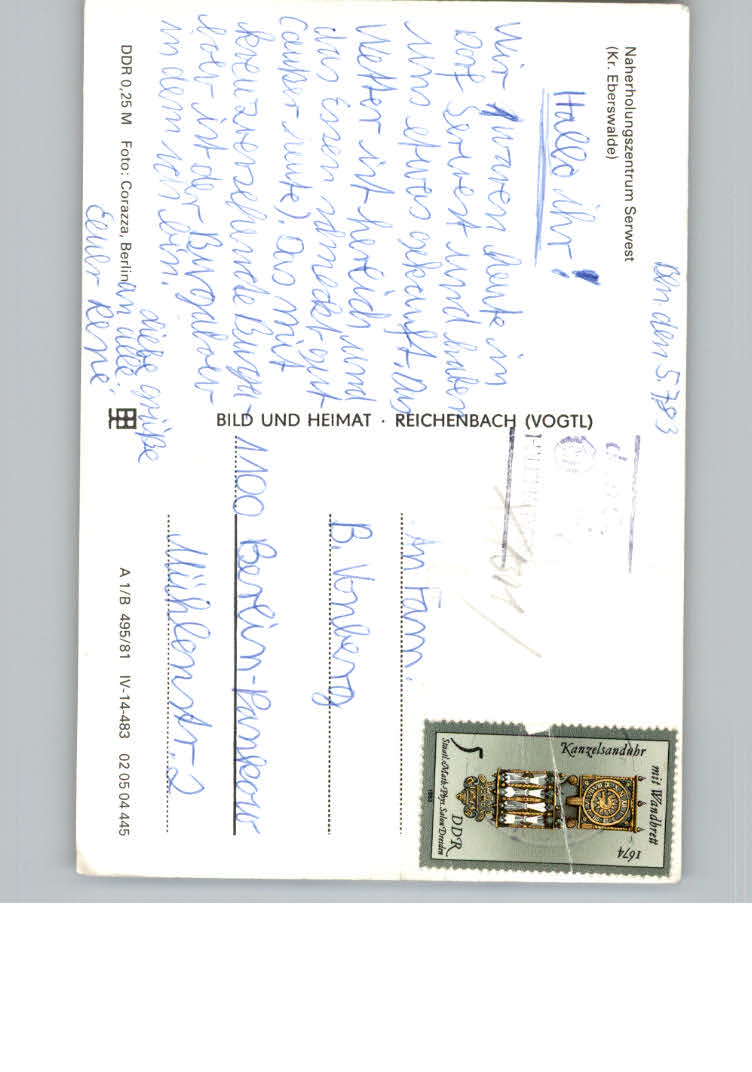 Naherholungszentrum Serwest
(Kr. Eberswalde)
Bln den 5.7.83
Hallo ihr!
Wir waren heute in
Dorf Serwest und haben
uns etwas gekauft. Das
Wetter ist herlich und
das Essen schmeckt gut
(außer heute). Das mit
kreuzversehende Bunga-
low ist der Bungalow
in dem ich bin.
Liebe Grüße
an alle.
Euer René.
DDR 0,25 M Foto: Corazza, Berlin
BILD UND HEIMAT · REICHENBACH (VOGTL)
An Fam.
B. Vonberg
1100 Berlin-Pankow
Mühlenstr. 2
A 1/B 495/81 IV-14-483 02 05 04 445
Kanzelsanduhr
mit Wandbrett
1674
5
DDR
Staatl. Math.-Phys. Salon Dresden
1983